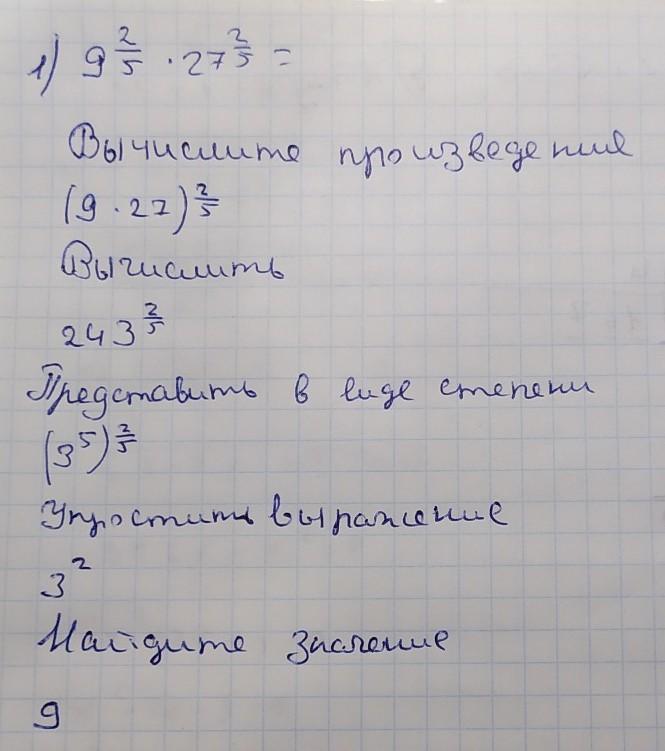 1) 9^(2/5) · 27^(2/5) =
Вычислите произведение
(9 · 27)^(2/5)
Вычислить
243^(2/5)
Представить в виде степени
(3^5)^(2/5)
Упростить выражение
3^2
Найдите значение
9